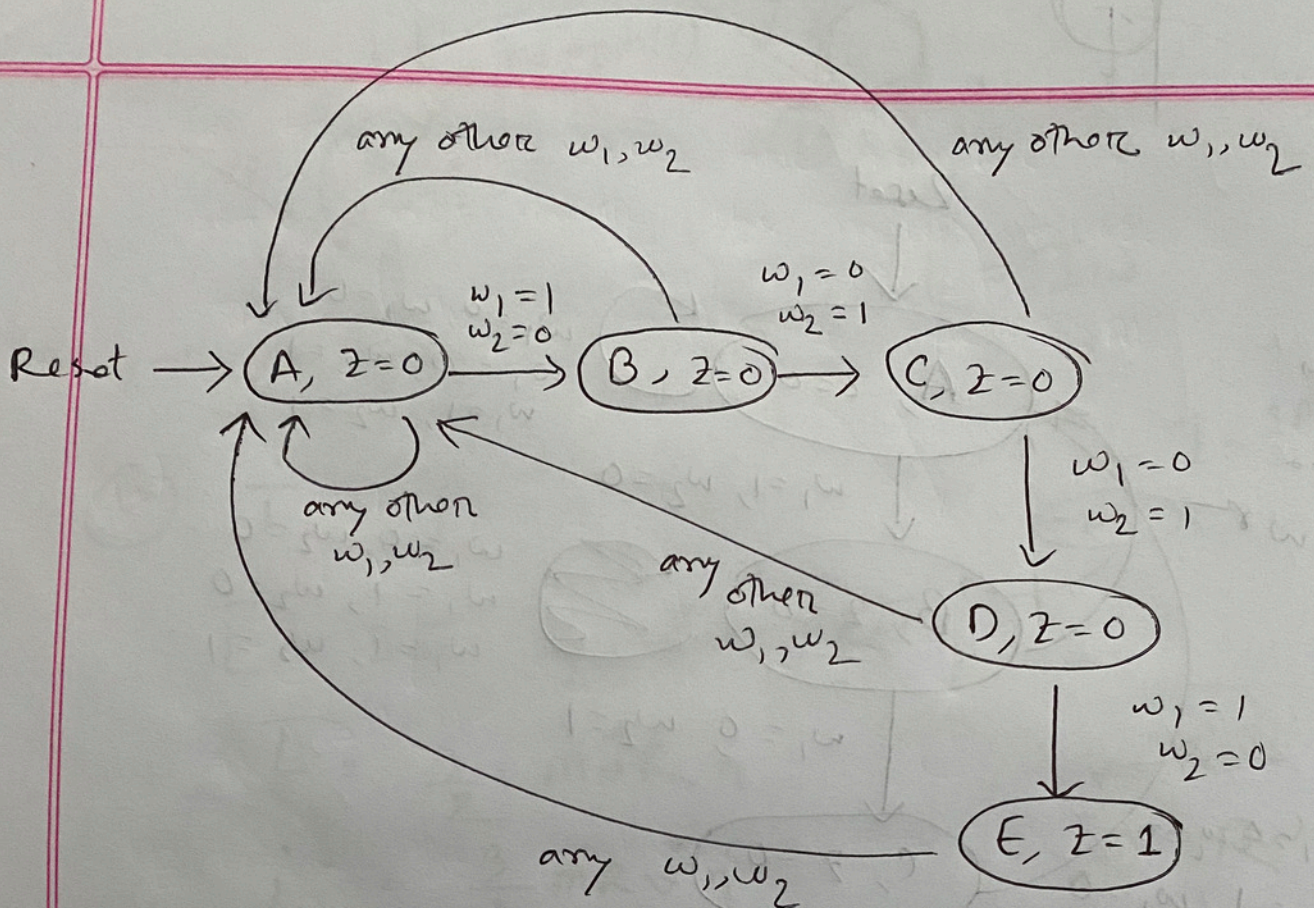 any other w₁, w₂
any other w₁, w₂
w₁ = 1
w₂ = 0
w₁ = 0
w₂ = 1
Reset
A, z=0
B, z=0
C, z=0
any other
w₁, w₂
w₁ = 0
w₂ = 1
any
other
w₁, w₂
D, z=0
w₁ = 1
w₂ = 0
E, z=1
any w₁, w₂